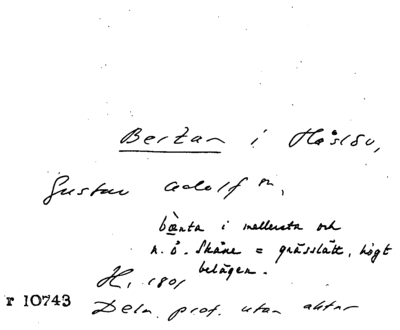 Bertan i Håslöv,
Gustav Adolf sn,
bænta i mellersta och
n. ö. Skåne = grässlätt, högt
belägen.
H, 1801
r 10743
Deln. prot. utan aktnr